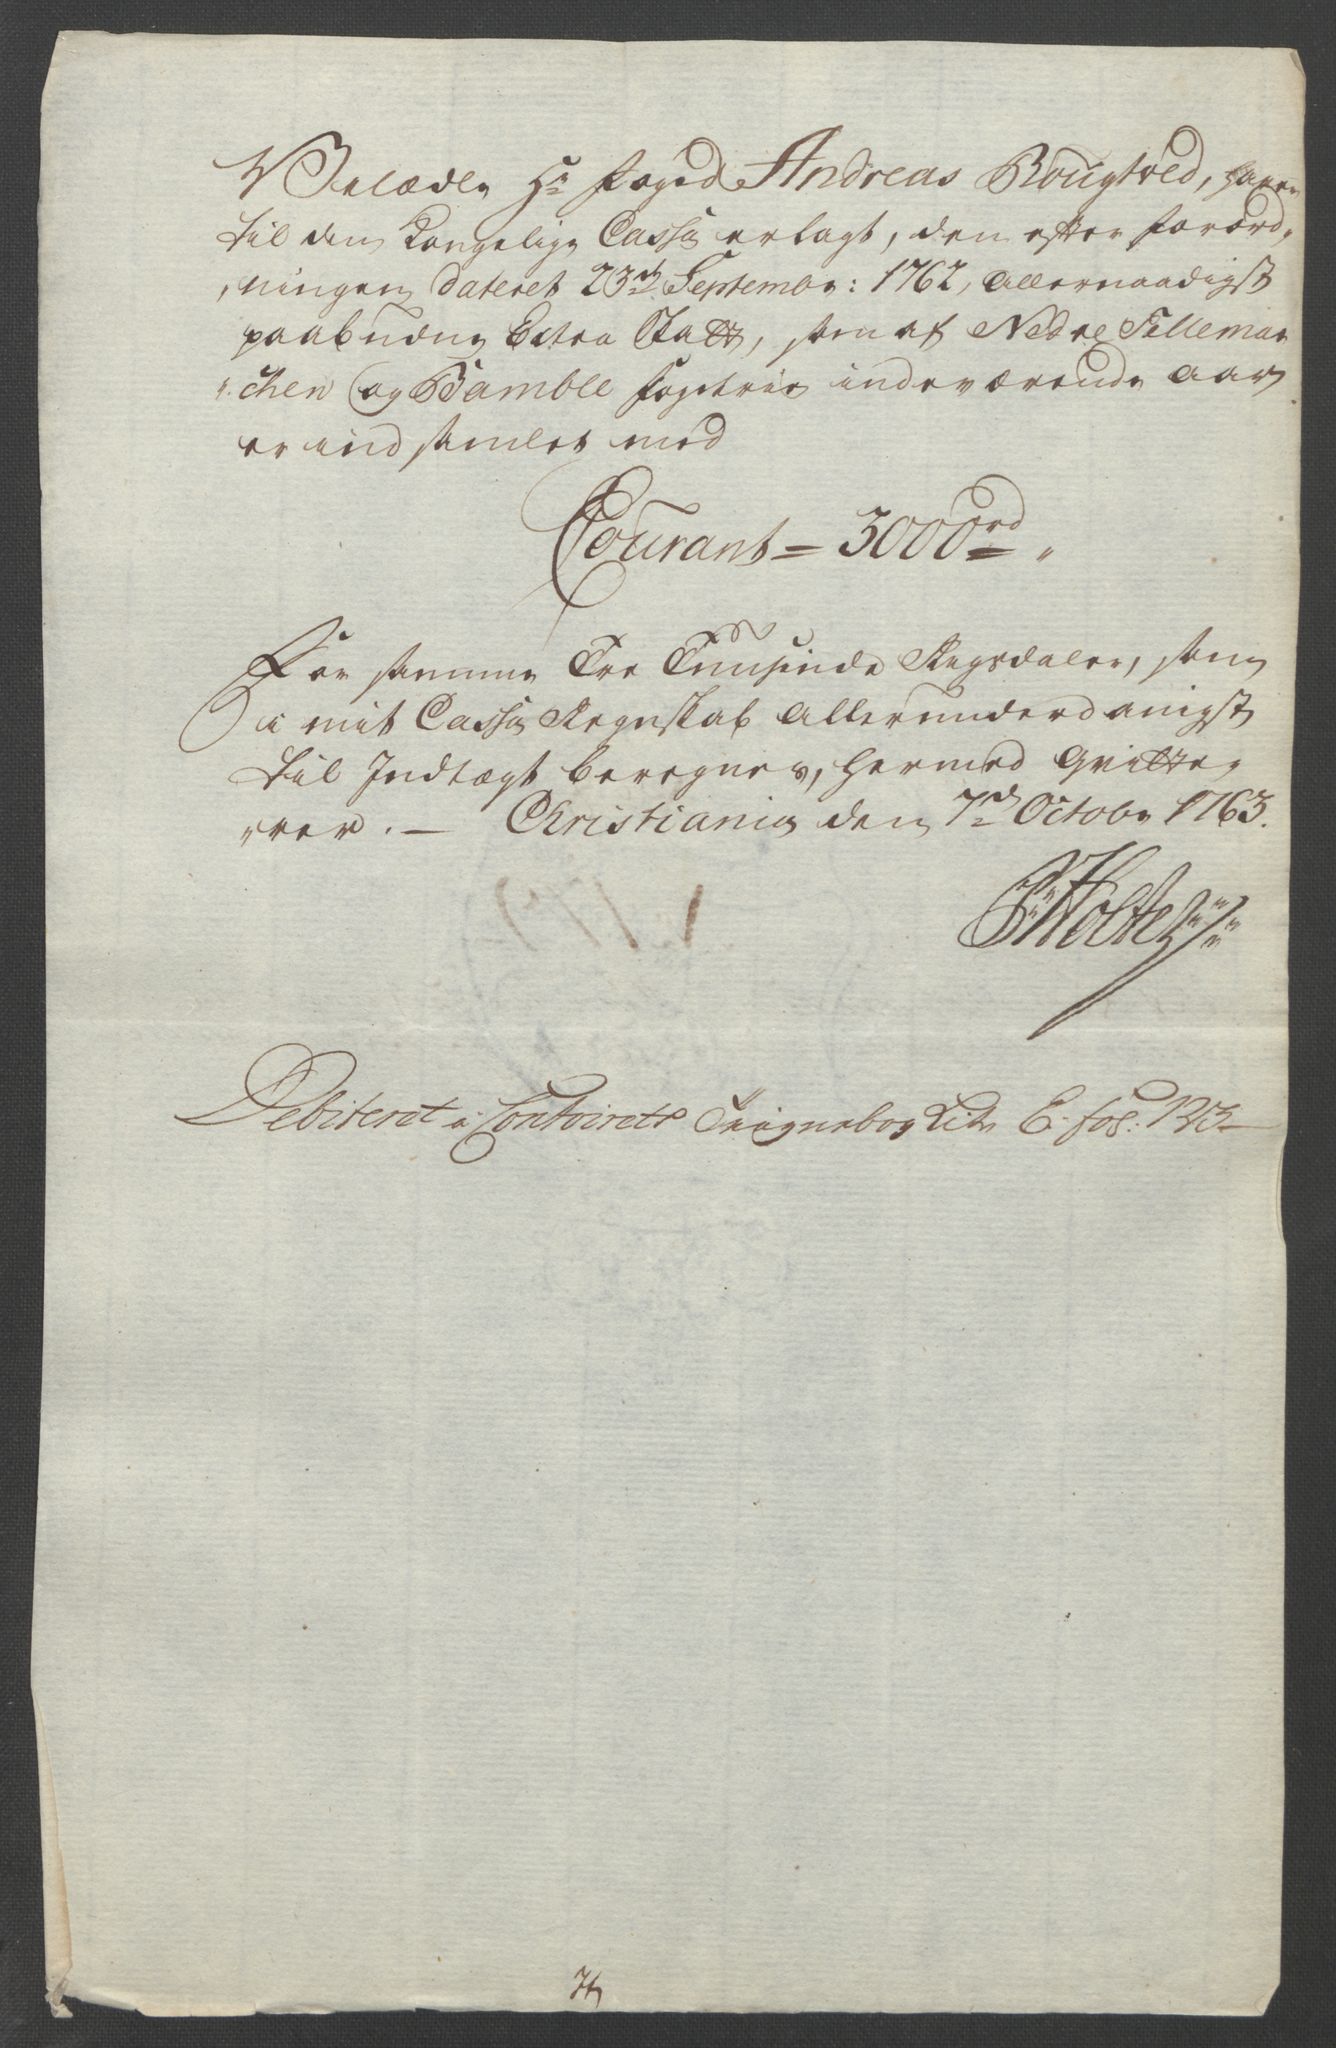 Velædle Hr Foged Andreas Rougtved, haver
til den Kongelige Cassa erlagt, den efter Forord„
„ningen dateret 23de Septembr: 1762, allernaadigst
paabudne Extra Skatt, som af Nedre Tellemar
„chen og Bamble Fogderie indeværende Aar
er indsamlet med
Courant = 3000 rd „
For samme Tre Tusinde Rigsdaler, som
i mit Cassa Regnskab allerunderdanigst
til Indtægt beregnes, hermed qvitte„
„rer. — Christiania den 7de Octobr 1763.
Holte
Debiteret i Contoirets Tegnebog Litr E. fol: 123